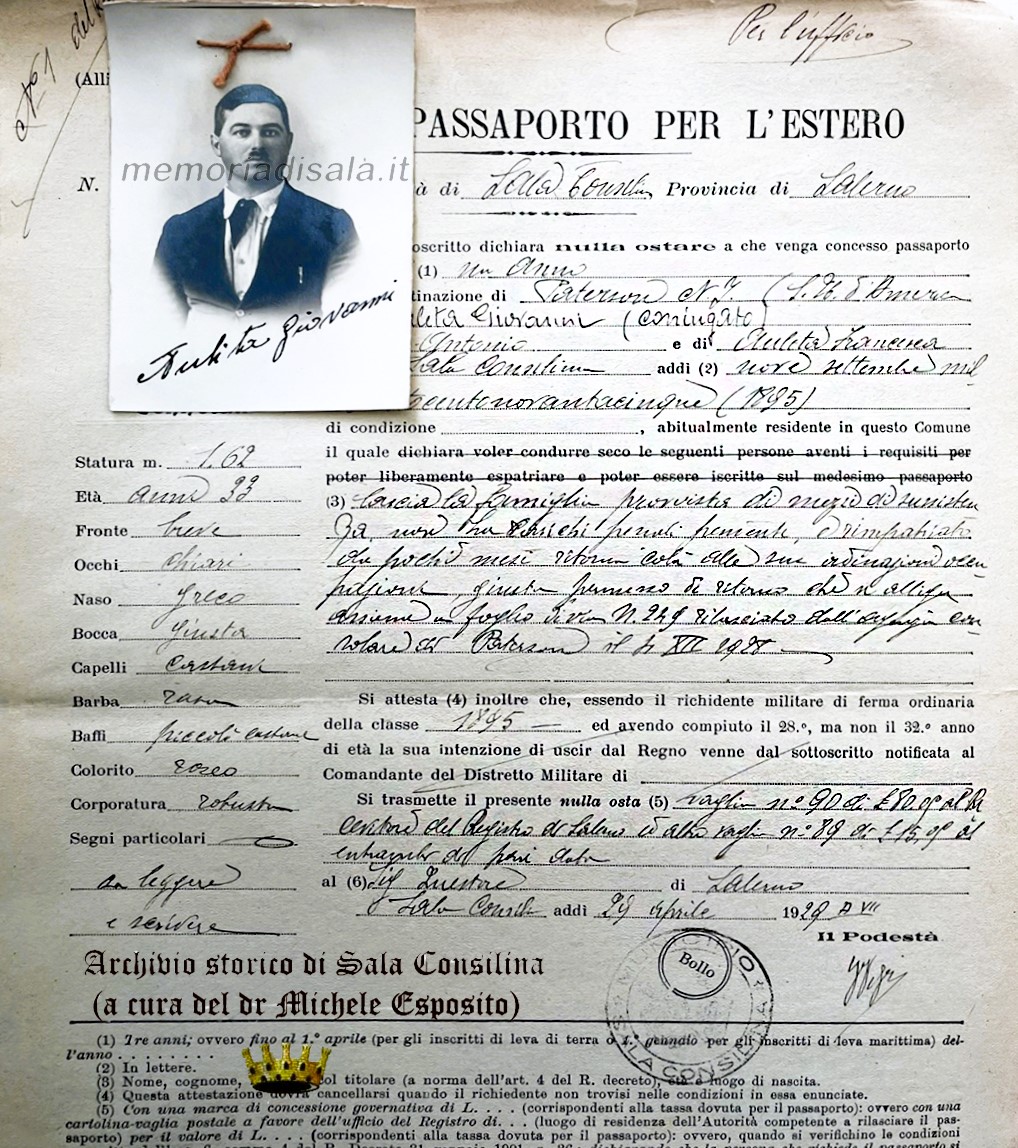 Per l'ufficio
N.º 1 del
(Alli
PASSAPORTO PER L'ESTERO
memoriadisalà.it
N. à di Sala Consilina Provincia di Salerno
oscritto dichiara nulla ostare a che venga concesso passaporto
(1) un anno
tinazione di Paterson N.J. (S.U. d'America
uleta Giovanni (coniugato)
Antonio e di Auleta Francesca
Sala Consilina addì (2) nove settembre mil
centonovantacinque (1895)
Auleta Giovanni
di condizione , abitualmente residente in questo Comune
il quale dichiara voler condurre seco le seguenti persone aventi i requisiti per
poter liberamente espatriare e poter essere iscritte sul medesimo passaporto
(3) lascia la famiglia provvista di mezzi di sussisten
za, non ha carichi penali pendente, rimpatriato
da pochi mesi ritorna colà alle sue ordinazioni occu
pazioni, giusta permesso di ritorno che si allega
assieme a foglio di via N. 249 rilasciato dall'agenzia con-
solare di Paterson il 4 XII 1928
Statura m. 1,62
Età anni 33
Fronte breve
Occhi chiari
Naso greco
Bocca giusta
Capelli castani
Barba rasa
Baffi piccoli castani
Colorito roseo
Corporatura robusta
Segni particolari
sa leggere
e scrivere
Si attesta (4) inoltre che, essendo il richidente militare di ferma ordinaria
della classe 1895 ed avendo compiuto il 28.º, ma non il 32.º anno
di età la sua intenzione di uscir dal Regno venne dal sottoscritto notificata al
Comandante del Distretto Militare di
Si trasmette il presente nulla osta (5) vaglia nº 90 di £ 80,00 al Ri
cevitore del Registro di Salerno ed altro vaglia nº 89 di £ 15,00 al
di pari data
al (6) Sig Questore di Salerno
Sala Consilina addì 29 aprile 1929 A VII
Il Podestà
Bollo
MUNICIPIO
SALA CONSILINA
Archivio storico di Sala Consilina
(a cura del dr Michele Esposito)
(1) Tre anni; ovvero fino al 1.º aprile (per gli inscritti di leva di terra o 1.º gennaio per gli inscritti di leva marittima) del-
l'anno . . . . . . . .
(2) In lettere.
(3) Nome, cognome, col titolare (a norma dell'art. 4 del R. decreto), età e luogo di nascita.
(4) Questa attestazione dovrà cancellarsi quando il richiedente non trovisi nelle condizioni in essa enunciate.
(5) Con una marca di concessione governativa di L. . . . (corrispondenti alla tassa dovuta per il passaporto): ovvero con una
cartolina-vaglia postale a favore dell'ufficio del Registro di. . . . (luogo di residenza dell'Autorità competente a rilasciare il pas-
saporto) per il valore di L. . . . (corrispondenti alla tassa dovuta per il passaporto): ovvero, quando si verifichino le condizioni